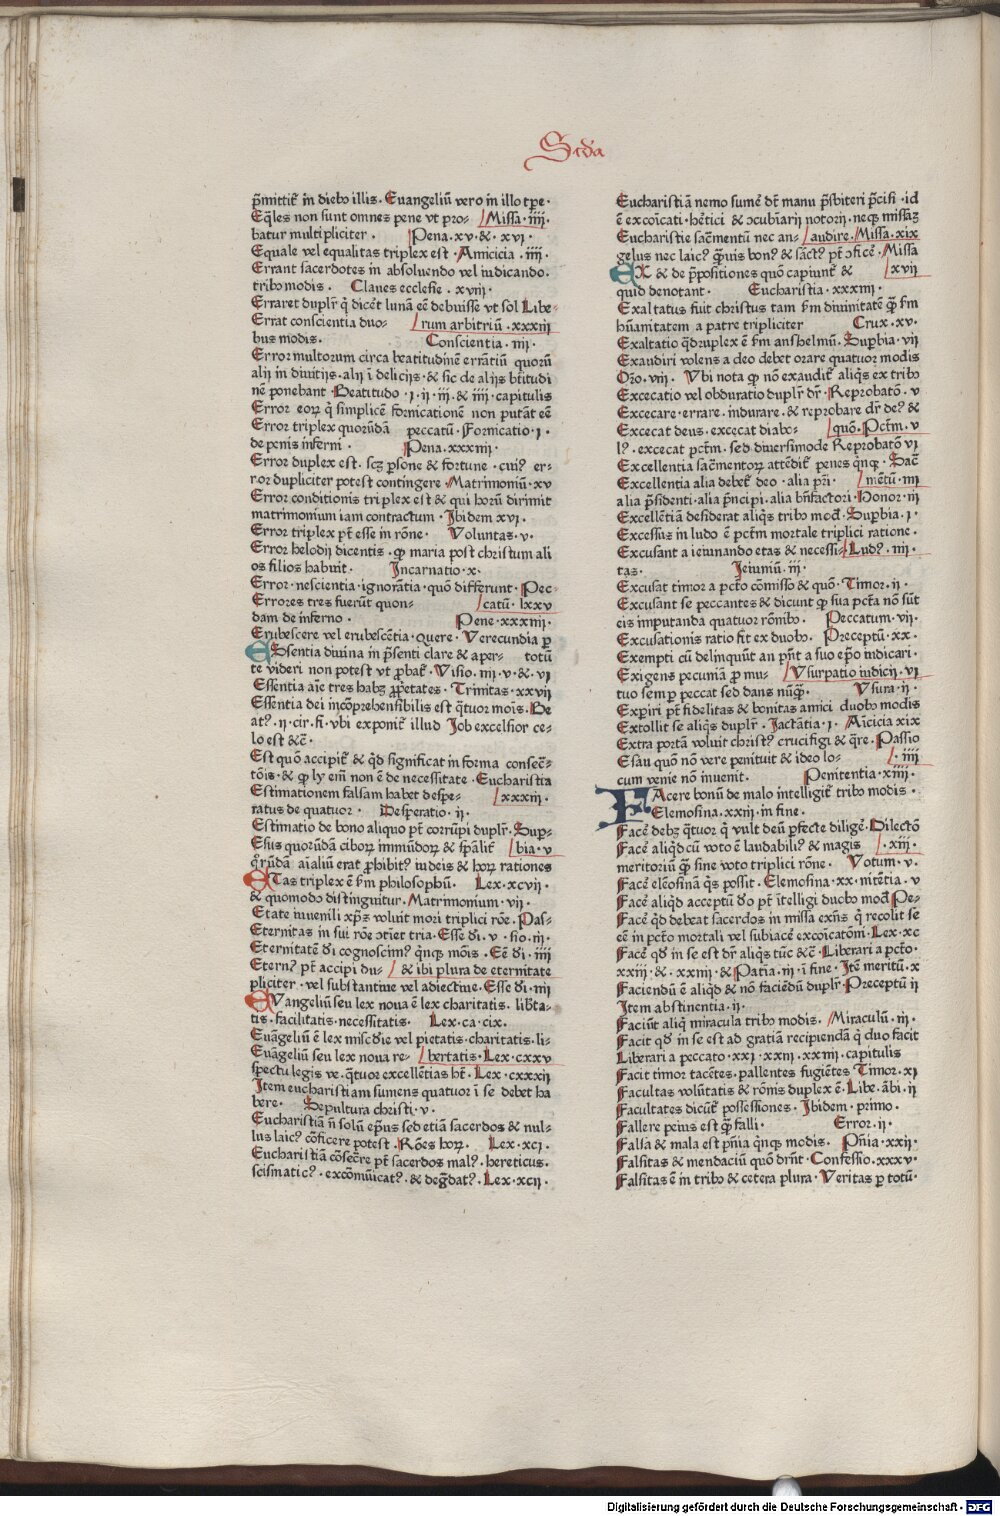 Scd'a
p̄mittit̄ in diebꝰ illis · Euangeliū vero in illo tp̄e ·
Eq̄les non sunt omnes pene vt pro- Missa · iiii ·
batur multipliciter · Pena · xv · & · xvi ·
Equale vel equalitas triplex est · Amicicia · iiii ·
Errant sacerdotes in absoluendo vel iudicando ·
tribꝰ modis · Claues ecclesie · xviii ·
Erraret duplr̄ q̄ dicet lunā eē debuisse vt sol Libe-
Errat conscientia duo- rum arbitriū · xxxiii
bus modis · Conscientia · iii ·
Error multorum circa beatitudinē errātiū quorū
alij in diuitijs · alij ī delicijs · & sic de alijs bt̄itudi
nē ponebant · Beatitudo · i · ii · iii · & iiii · capitulis
Error eoꝝ q̄ simplicē fornicationē non putāt eē
Error triplex quorūdā peccatū · Fornicatio · i ·
de penis inferni · Pena · xxxiiii ·
Error duplex est · scꝫ ꝑsone & fortune · cuiꝰ er-
ror dupliciter potest contingere · Matrimoniū · xv
Error conditionis triplex est & qui horū dirimit
matrimonium iam contractum · Ibidem xvi ·
Error triplex pt̄ esse in rōne · Voluntas · v ·
Error helodij dicentis · ꝙ maria post christum ali
os filios habuit · Incarnatio · x ·
Error · nescientia · ignorātia · quō differunt · Pec-
Errores tres fuerūt quon- catū · lxxv
dam de inferno · Pene · xxxiiii ·
Erubescere vel erubescētia · quere · Verecundia ꝑ
ESsentia diuina in p̄senti clare & aper- totū
te videri non potest vt ꝓbat̄ · Visio · iii · v · & · vi
Essentia aīe tres habꝫ ꝓp̄etates · Trinitas · xxvii
Essentia dei incōprehensibilis est q̄tuor mōis · Be
atꝰ · ii · cir · fi · vbi exponit̄ illud Job excelsior ce-
lo est &c̄ ·
Est quō accipit̄ & q̄d significat in forma consec̄-
tōis · & ꝙ ly em̄ non ē de necessitate · Eucharistia
Estimationem falsam habet despe- xxxiii ·
ratus de quatuor · Desperatio · ii ·
Estimatio de bono aliquo pt̄ corrūpi duplr̄ · Suꝑ-
Esus quorūdā ciboꝝ immūdoꝝ & sp̄alit̄ bia · v
q̄rūdā aīaliū erat ꝓhibitꝰ iudeis & hoꝝ rationes
ETas triplex ē ẜm philosophū · Lex · xcvii ·
& quomodo distinguitur · Matrimonium · vii ·
Etate iuuenili xp̄s voluit mori triplici rōe · Pas-
Eternitas in sui rōe ↄtīet tria · Esse dī · v · sio · iii ·
Eternitatē dī cognoscimꝰ q̄nqꝫ mōis · Eē dī · iiii
Eternꝰ pt̄ accipi du- & ibi plura de eternitate
pliciter · vel substantiue vel adiectiue · Esse dī · iii
EVangeliū seu lex noua ē lex charitatis · lib̄ta-
tis · facilitatis · necessitatis · Lex · ca · cix ·
Euāgeliū ē lex mīsc̄die vel pietatis · charitatis · li-
Euāgeliū seu lex noua re- bertatis · Lex · cxxv
spectu legis ve · q̄tuor excellētias hēt · Lex · cxxxii
Item eucharistiam sumens quatuor ī se debet ha
bere · Sepultura christi · v ·
Eucharistiā n̄ solū ep̄us sed etiā sacerdos & nul-
lus laicꝰ cōficere potest · Rōes hoꝝ · Lex · xci ·
Eucharistiā cōsec̄re pt̄ sacerdos malꝰ · hereticus ·
scismaticꝰ · excōm̄icatꝰ · & deḡdatꝰ · Lex · xcii ·
Eucharistiā nemo sume d̄t manu p̄sbiteri p̄cisi · id
ē excoīcati · hētici & ↄcubīarij notorij · neqꝫ missaꝫ
Eucharistie sac̄mentū nec an- audire · Missa · xix
gelus nec laicꝰ q̄̄uis bonꝰ & sāctꝰ pt̄ ↄficē · Missa
EX & de p̄positiones quō capiunt̄ & xvii
quid denotant · Eucharistia · xxxiii ·
Exaltatus fuit christus tam ẜm diuinitatē q̄̄ ẜm
hūanitatem a patre tripliciter Crux · xv ·
Exaltatio q̄druplex ē ẜm anshelmū · Suꝑbia · vii
Exaudiri volens a deo debet orare quatuor modis
Orō · vii · Vbi nota ꝙ nō exaudit̄ aliq̄s ex tribꝰ
Excecatio vel obduratio duplr̄ dr̄ · Reprobatō · v
Excecare · errare · indurare · & reprobare dr̄ deꝰ &
Excecat deus · excecat diabo- quō · Pctm̄ · v
lꝰ · excecat pctm̄ · sed diuersimode Reprobatō vi
Excellentia sac̄mentoꝝ attēdit̄ penes q̄nqꝫ · Sac̄
Excellentia alia debet̄ deo · alia pr̄i · mētū · iii
alia p̄sidenti · alia p̄ncipi · alia bn̄factori · Honor · iii
Excellētiā desiderat aliq̄s tribꝰ mōd̄ · Suꝑbia · i ·
Excessus in ludo ē pctm̄ mortale triplici ratione ·
Excusant a ieiunando etas & necessi- Ludꝰ · iii ·
tas · Jeiuniū · iii ·
Excusat timor a pctō cōmisso & quō · Timor · ii ·
Excusant se peccantes & dicunt ꝙ sua pctā nō sūt
eis imputanda quatuor rōnibꝰ · Peccatum · vii ·
Excusationis ratio fit ex duobꝰ · Preceptū · xx ·
Exempti cū delinquūt an pn̄t a suo ep̄o iudicari ·
Exigens pecuniā ꝓ mu- Vsurpatio iudicij · vi
tuo semꝑ peccat sed dans nūq̄̄ · Vsura · ii ·
Exꝑiri pt̄ fidelitas & bonitas amici duobꝰ modis
Extollit se aliq̄s duplr̄ · Jactātia · i · Am̄icicia xix
Extra portā voluit christꝰ crucifigi & q̄re · Passio
Esau quō nō vere penituit & ideo lo- · iiii
cum venie nō inuenit · Penitentia · xiiii ·
FAcere bonū de malo intelligit̄ tribꝰ modis ·
Elemosina · xxiii · in fine ·
Facē debꝫ q̄tuor q̄ vult deū ꝑfecte diligē · Dilectō
Facē aliq̄d cū voto ē laudabiliꝰ & magis · xiii ·
meritoriū q̄̄ sine voto triplici rōne · Votum · v ·
Facē eleōsinā q̄s possit · Elemosina · xx · nītētia · v
Facē aliq̄d acceptū dō pt̄ ītelligi duobꝰ mōd̄ Pe-
Facē q̄d debeat sacerdos in missa exn̄s q̄ recolit se
eē in pctō mortali vel subiacē excoīcatōni · Lex · xc
Facē qd̄ in se est dr̄ aliq̄s tūc &c̄ · Liberari a pctō ·
xxiij · & · xxiiii · & Patīa · iii · ī fine · Itē meritū · x
Faciendū ē aliq̄d & nō faciēdū duplr̄ · Preceptū ii
Item abstinentia · ii ·
Faciūt aliq̄ miracula tribꝰ modis · Miraculū · iii ·
Facit qd̄ in se est ad gratiā recipiendā q̄ duo facit
Liberari a peccato · xxi · xxii · xxiii · capitulis
Facit timor tacētes · pallentes fugiētes Timor · xi
Facultas volūtatis & rōnis duplex ē · Libe · āb̄i · ii
Facultates dicūt̄ possessiones · Ibidem primo ·
Fallere peius est q̄̄ falli · Error · ii ·
Falsa & mala est pn̄ia q̄nqꝫ modis · Pn̄ia · xxii ·
Falsitas & mendaciū quō dr̄nt · Confessio · xxxv ·
Falsitas ē in tribꝰ & cetera plura · Veritas ꝑ totū ·
Digitalisierung gefördert durch die Deutsche Forschungsgemeinschaft - DFG